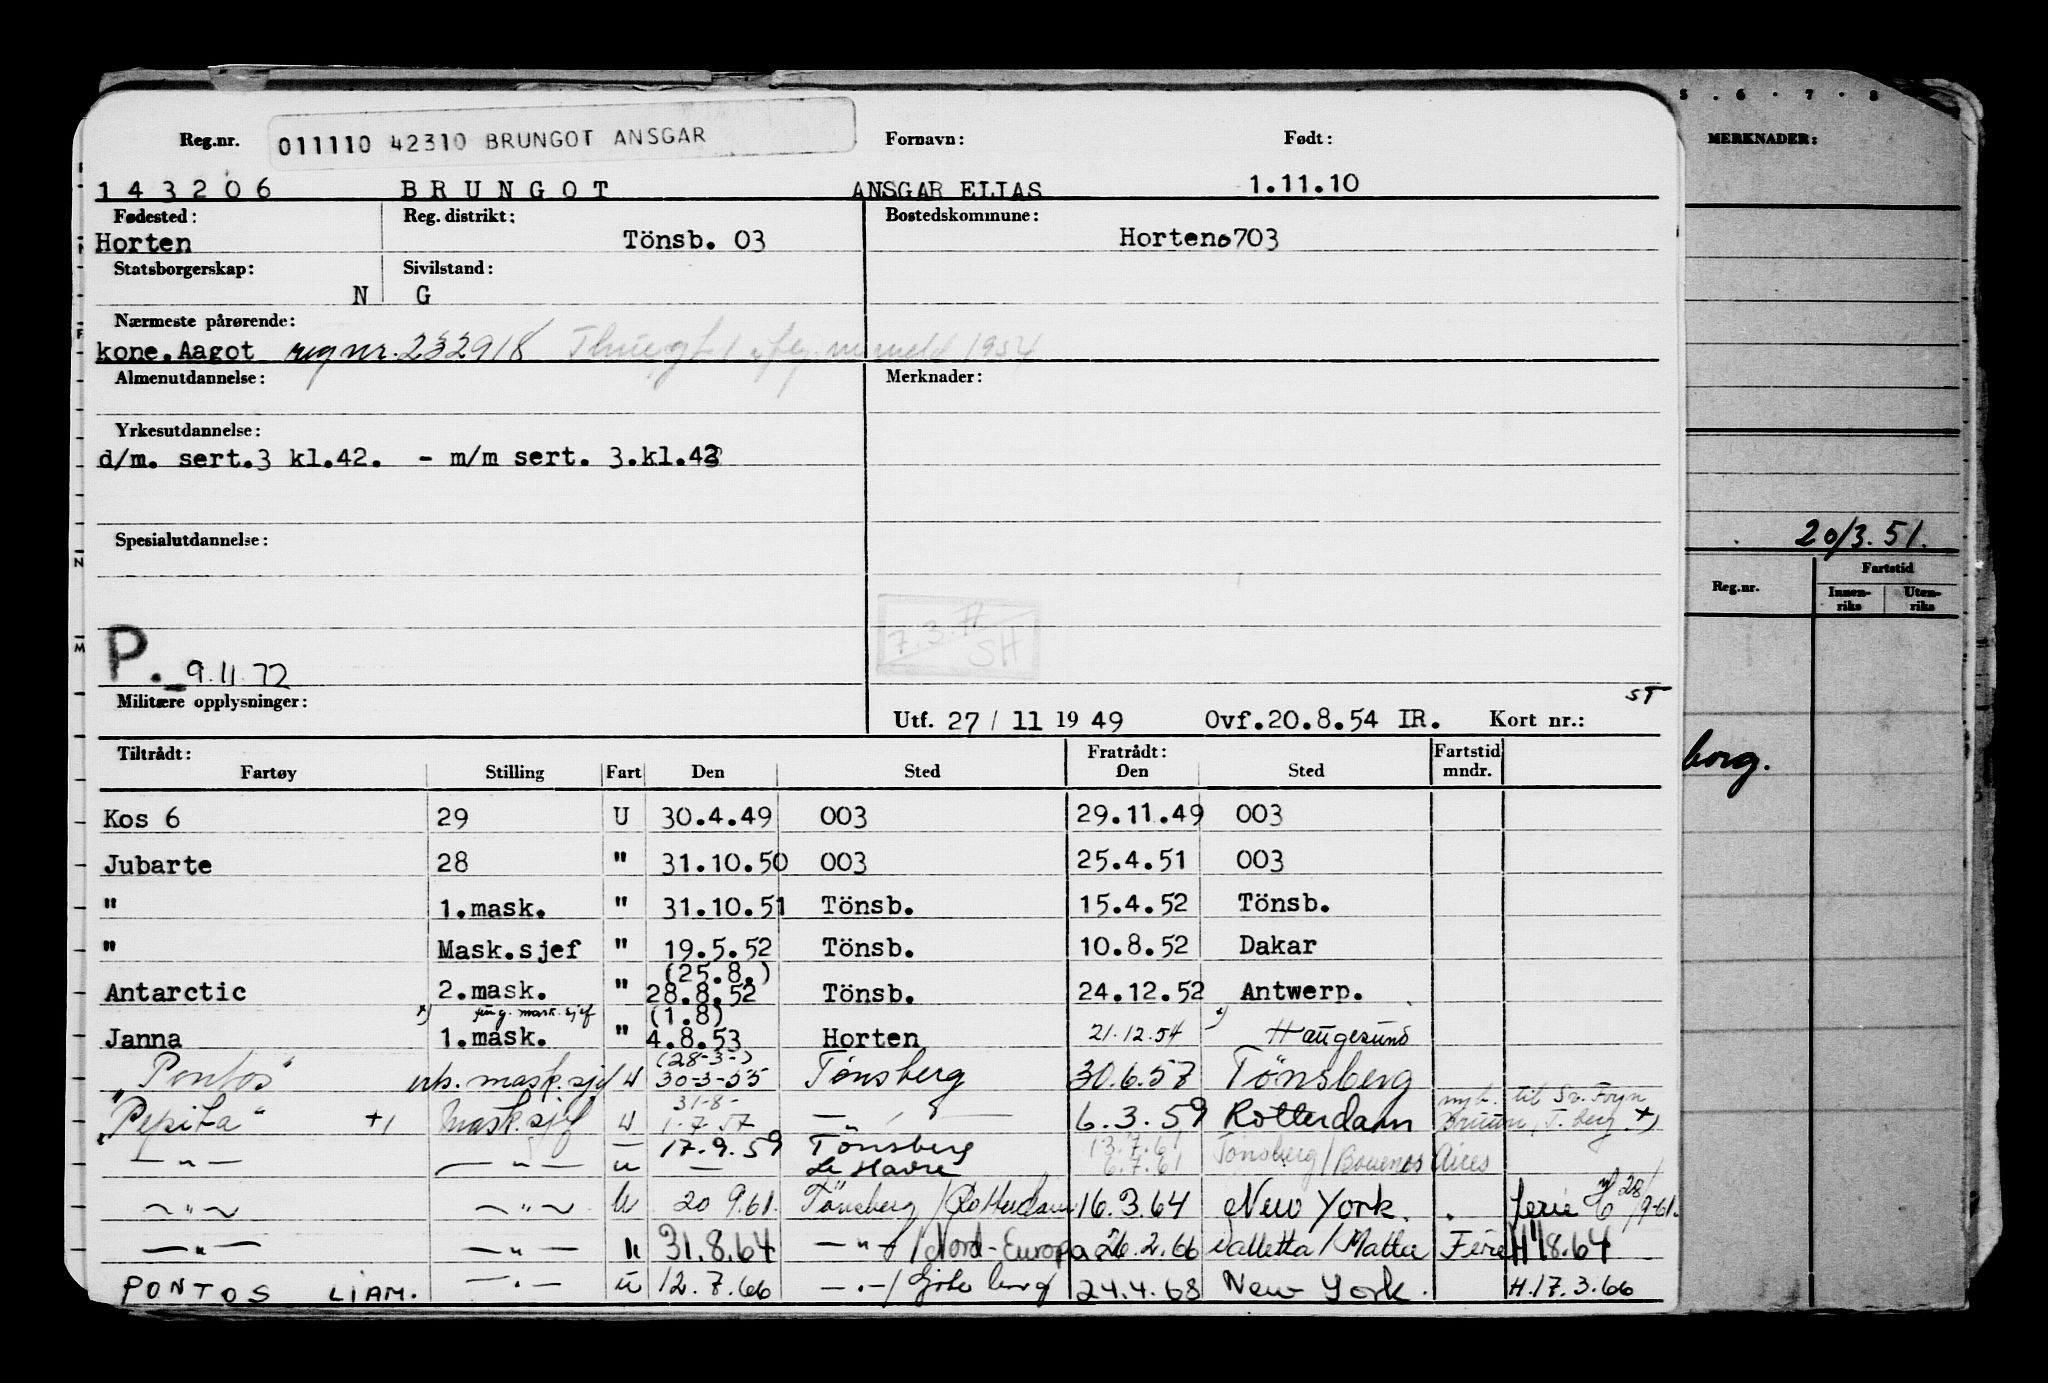 5 . 6 . 7 . 8
MERKNADER:
Reg.nr. 011110 42310 BRUNGOT ANSGAR Fornavn: Født:
143206 BRUNGOT ANSGAR ELIAS 1.11.10
Fødested: Reg. distrikt: Bostedskommune:
Horten Tönsb. 03 Horten 0703
Statsborgerskap: Sivilstand:
N G
Nærmeste pårørende:
kone. Aagot reg nr. 232918 1954
Almenutdannelse: Merknader:
Yrkesutdannelse:
d/m. sert.3 kl.42. - m/m sert. 3.kl.43
Spesialutdannelse:
20/3.51.
Reg.nr. Fartstid
Innen-riks Uten-riks
7.3.77
SH
P. 9.11.72
Militære opplysninger:
ST
Utf. 27/11 1949 Ovf.20.8.54 IR. Kort nr.:
borg.
Tiltrådt: Fratrådt: Fartstid
Fartøy Stilling Fart Den Sted Den Sted mndr.
Kos 6 29 U 30.4.49 003 29.11.49 003
Jubarte 28 " 31.10.50 003 25.4.51 003
" 1.mask. " 31.10.51 Tönsb. 15.4.52 Tönsb.
" Mask.sjef " 19.5.52 Tönsb. 10.8.52 Dakar
(25.8.)
Antarctic 2.mask. " 28.8.52 Tönsb. 24.12.52 Antwerp.
x) fung. mask.sjef (1.8) x)
Janna 1.mask. " 4.8.53 Horten 21.12.54 Haugesund
(28-3-)
"Pontos" mask.sjef U 30-3-55 Tønsberg 30.6.57 Tönsberg
31-8- til Sv. Foyn
"Pepita" +) Mask.sjef U 1.7.57 — " — 6.3.59 Rotterdam Bruun, T.berg. x)
17.9.59 Tönsberg 13.7.61
— " — — " — U — Le Havre 6.7.61 Tönsberg / Bouenos Aires
— " — — " — U 20 9.61. Tönsberg / Rotterdam 16.3.64 New York. ferie H 28/9-61.
— " — — " — U 31.8.64 — " — / Nord-Europa 26.2.66 Valletta / Malta Ferie H 18.64
PONTOS LIAM. — " — U 12.7.66 — " — / Göteborg 24.4.68 New York. H.17.3.66